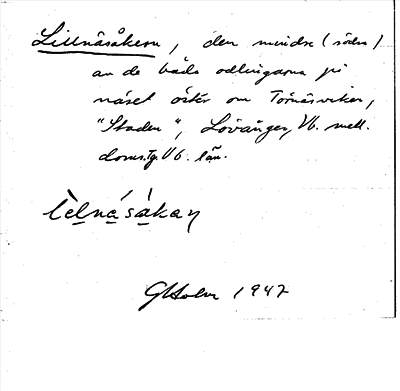 Lillnäsåkern, den mindre (södra)
av de båda odlingarna på
näset öster om Tornäsviken,
"Staden", Lövånger, Vb. mell.
doms. Vb. län.
G Holm 1947